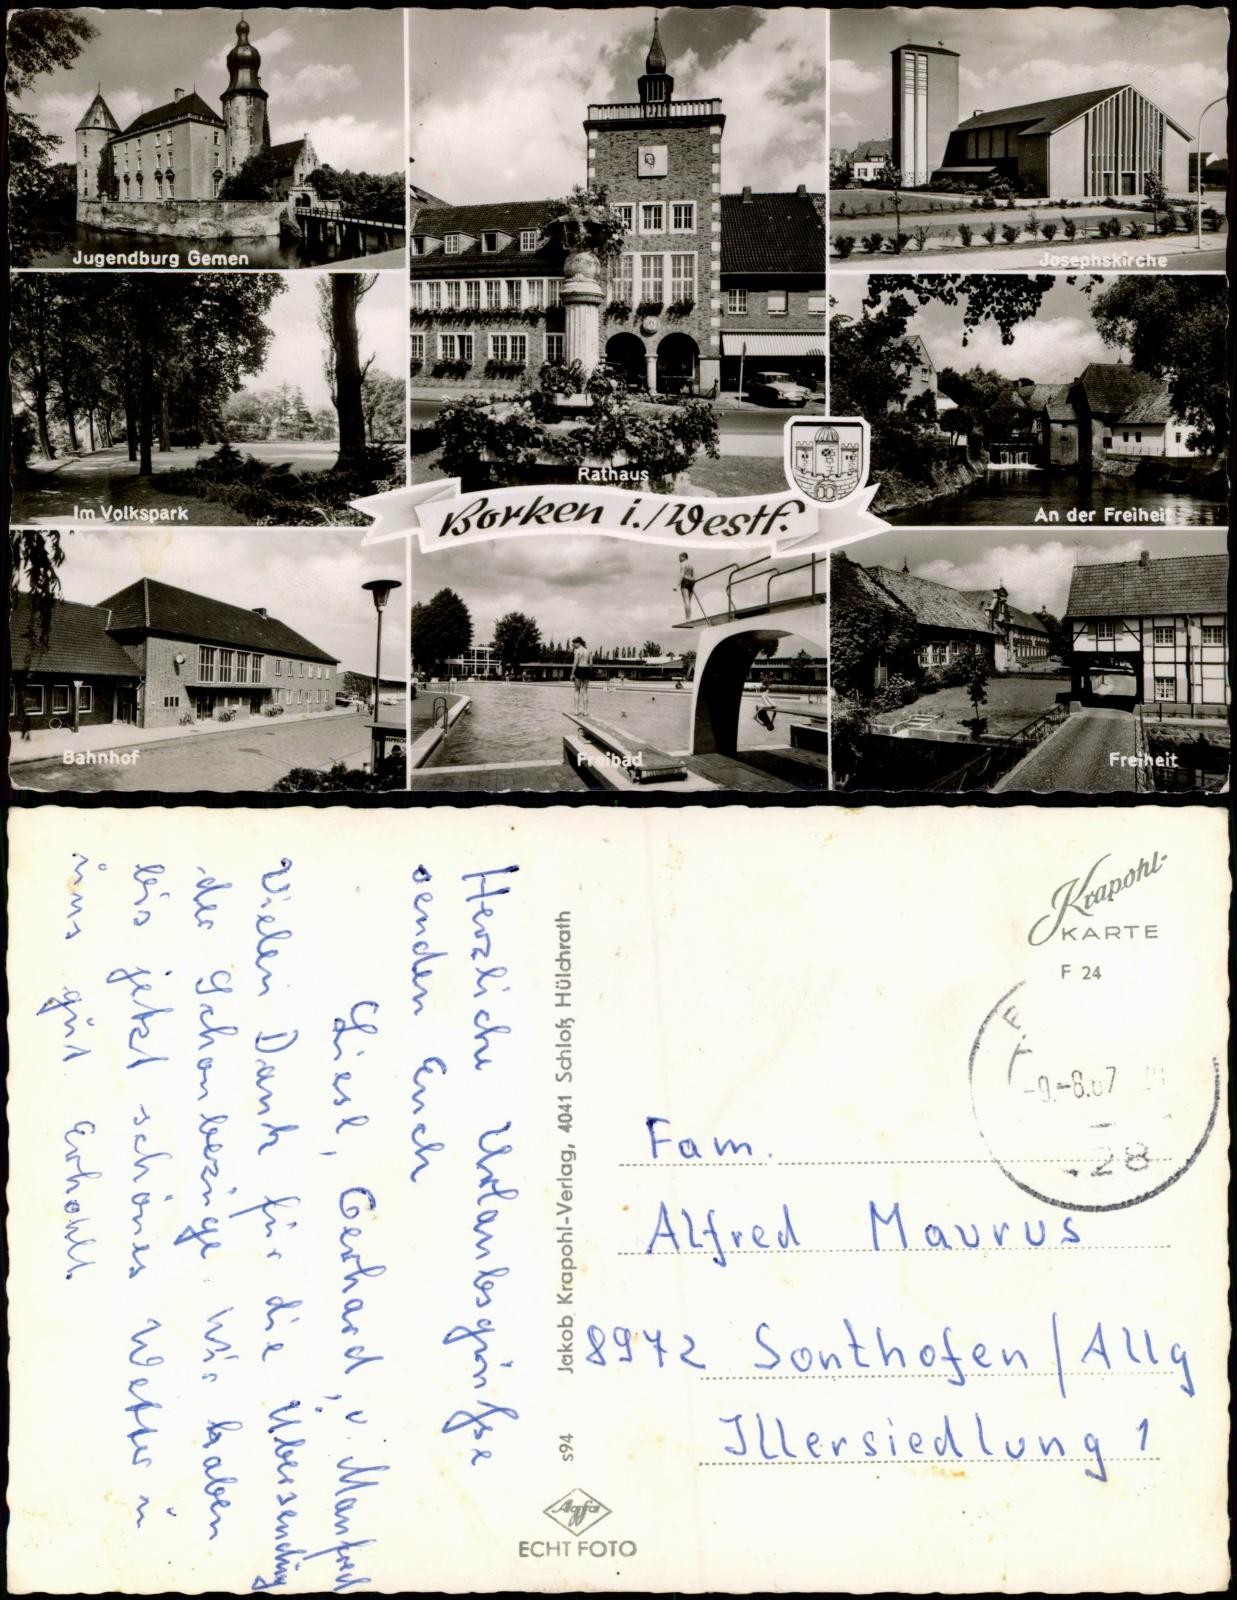 Jugendburg Gemen
Rathaus
Josephskirche
Im Volkspark
An der Freiheit
Borken i./Westf.
Bahnhof
Freibad
Freiheit
Herzliche Urlaubsgrüße
senden Euch
Liesl, Gerhard, u. Manfred
Vielen Dank für die Übersendung
der Schonbezüge. Wir haben
bis jetzt schönes Wetter u
uns gut Erholt.
s94 Jakob Krapohl-Verlag, 4041 Schloß Hülchrath
Agfa
ECHT FOTO
Krapohl-
KARTE
F 24
-9.-8.67
28
Fam.
Alfred Maurus
8972 Sonthofen/Allg
Illersiedlung 1